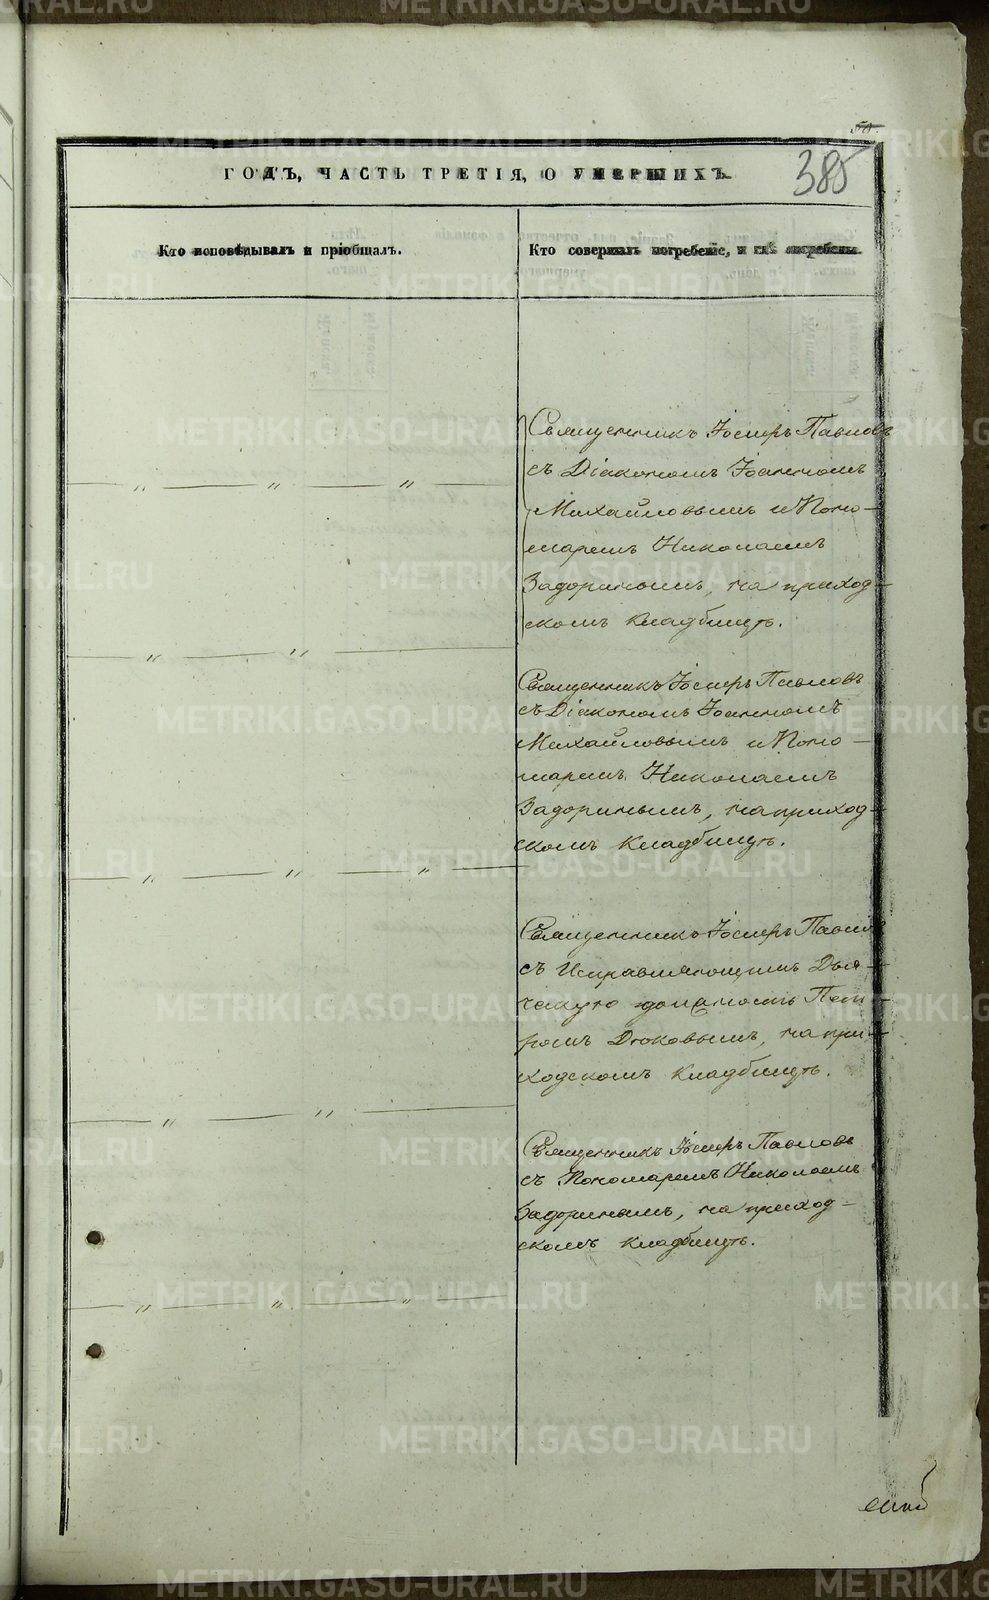 50.
385
ГОДЪ, ЧАСТЬ ТРЕТІЯ, О УМЕРШИХЪ
Кто исповѣдывалъ и пріобщалъ.
Кто совершалъ погребеніе, и гдѣ погребены.
Священникъ Іосифъ Павловъ
съ Діакономъ Іоанномъ
Михайловымъ и Поно-
маремъ Николаемъ
Задоринымъ, на приход-
скомъ кладбищѣ.
Священникъ Іосифъ Павловъ
съ Діакономъ Іоанномъ
Михайловымъ и Поно-
маремъ Николаемъ
Задоринымъ, на приход-
скомъ кладбищѣ.
Священникъ Іосифъ Павловъ
съ Исправляющимъ Дья-
ческую должность Пет-
ромъ Дюковымъ, на при-
ходскомъ кладбищѣ.
Священникъ Іосифъ Павловъ
съ Пономаремъ Николаемъ
Задоринымъ, на приход-
скомъ кладбищѣ.
METRIKI.GASO-URAL.RU